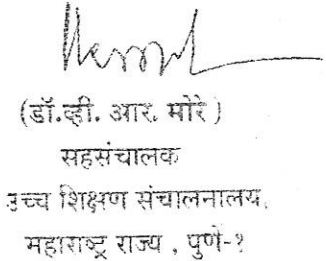 (डॉ.व्ही. आर. मोरे)
सहसंचालक
उच्च शिक्षण संचालनालय,
महाराष्ट्र राज्य , पुणे-१